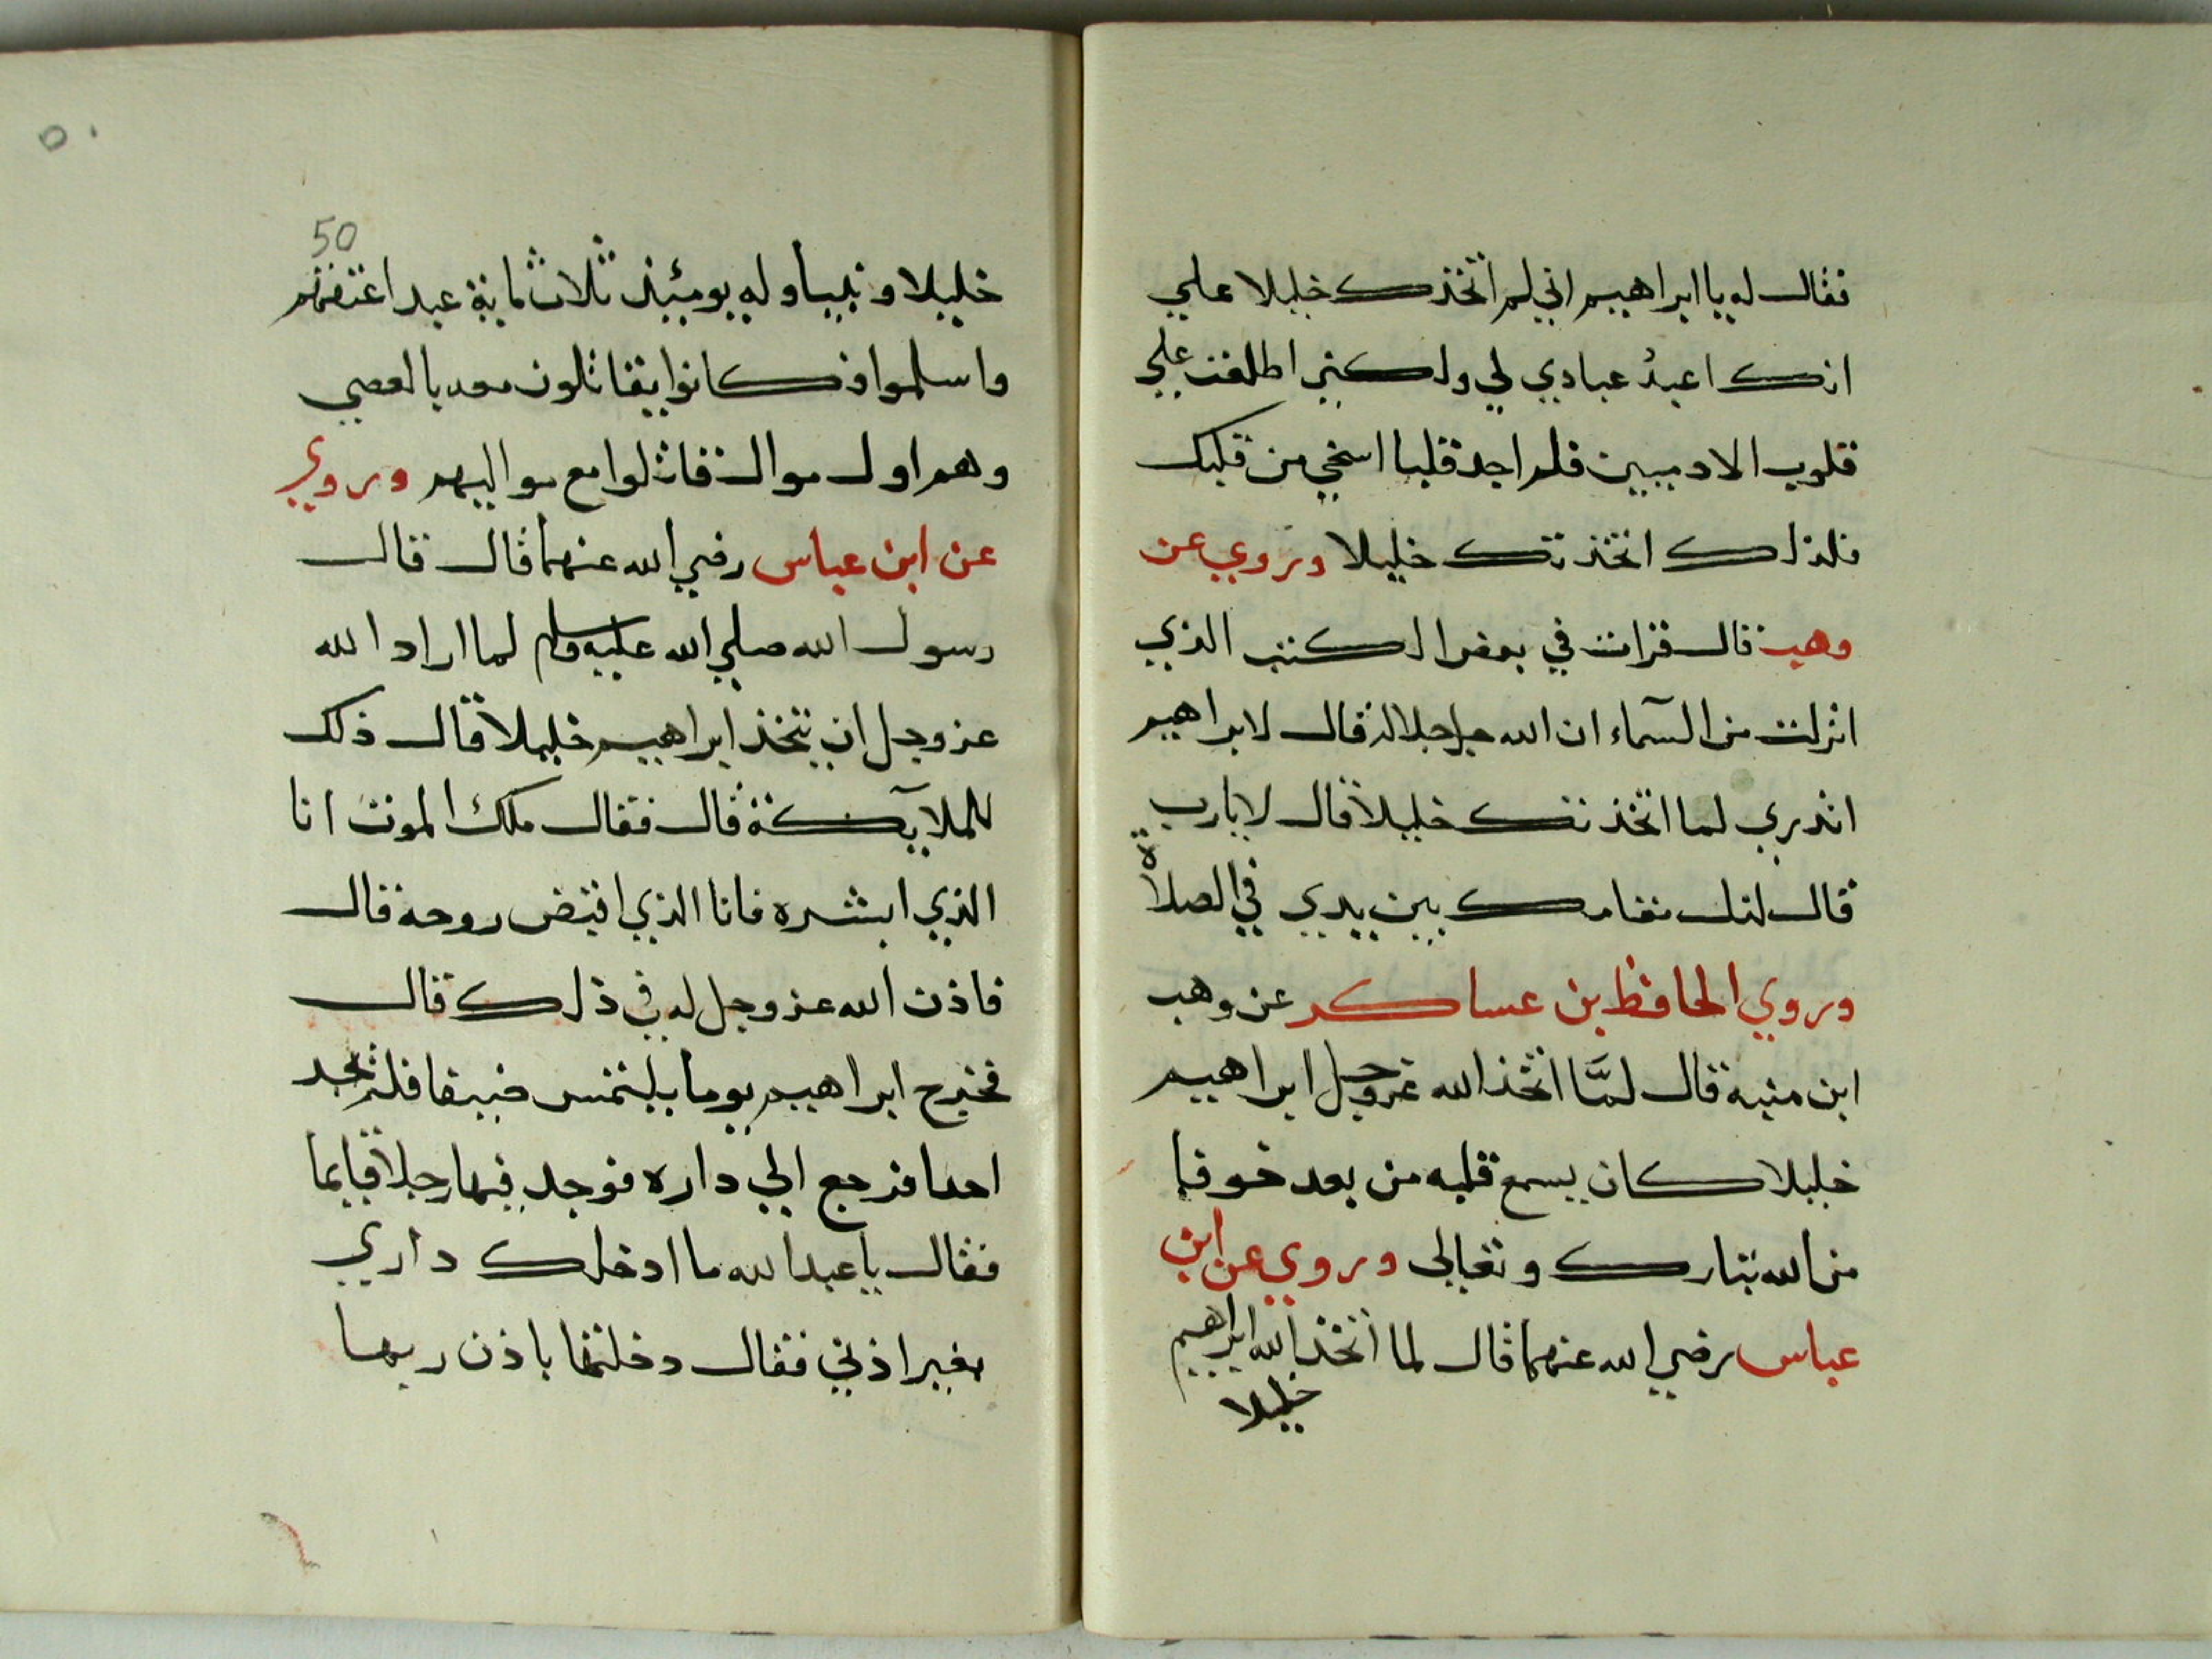 فقال له يا ابراهيم اني لم اتخذك خليلا علي
انك اعبدُ عبادي لي ولكني اطلعت علي
قلوب الادميين فلم اجد قلبا اسخي من قلبك
فلذلك اتخذتك خليلا وروي عن
وهب قال قرات في بعض الكتب الذي
انزلت من السمآء ان الله جل جلاله قال لابراهيم
اتدري لما اتخذتك خليلا قال لا يارب
قال لذلك مقامك بين يدي في الصلاة
وروي الحافظ بن عساكر عن وهب
ابن منبه قال لمَّا اتخذ الله عز وجل ابراهيم
خليلا كان يسمع قلبه من بعد خوفا
من الله تبارك وتعالي وروي عن ابن
عباس رضي الله عنهما قال لما اتخذ الله ابراهيم
خليلا
٥٠
50
خليلا ونبيا وله يوميئذ ثلاث ماية عبد اعتقهم
واسلموا فكانوا يقاتلون معه بالعصي
وهم اول موال قاتلوا مع مواليهم وروي
عن ابن عباس رضي الله عنهما قال قال
رسول الله صلي الله عليه وسلم لما اراد الله
عز وجل ان يتخذ ابراهيم خليلا قال ذلك
للملآيكة قال فقال ملك الموت انا
الذي ابشره فانا الذي اقبض روحه قال
فاذن الله عز وجل له في ذلك قال
فخرج ابراهيم يوما يلتمس ضيفا فلم يجد
احدا فرجع الي داره فوجد فيها رجلا قايما
فقال يا عبد الله ما ادخلك داري
بغير اذني فقال دخلتها باذن ربها